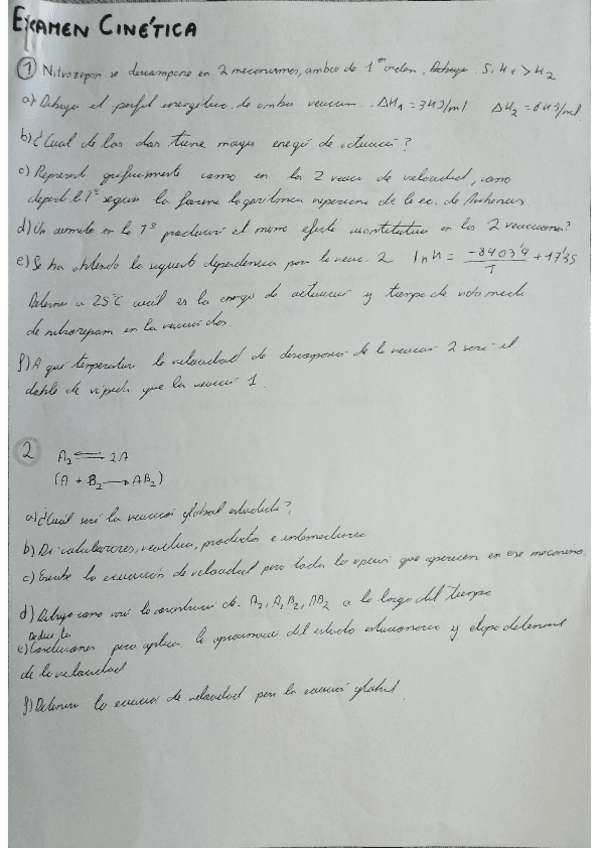 EXAMEN CINÉTICA
1 Nitrozepan se descompone en 2 mecanismos, ambos de 1er orden. Si K1 > K2
a) Dibuja el perfil energético de ambas ΔH1 = 3 ΔH2 =
b) ¿Cual de las dos tiene mayor energí de activación?
c) Represent gráficamente como en la 2 de velocidad, como
depend l Tª según la forma logarítmica de la ec. de Arrhenius.
d) Un aumento en la Tª producirá el mismo efecto cuantitativo en las 2 reacciones?
e) Se ha obtenido la siguiente dependencia para la reacc. 2 ln K = -8403'9/T + 17'35
Determina a 25ºC cuál es la energía de activación y tiempo de vida media
de nitrozepam en la reacción dos.
f) A qué temperatura la velocidad de descomposición de la reacción 2 será el
doble de rápida que la reacción 1.
2 A2 ⇌ 2A
(A + B2 → AB2)
a) ¿Cuál será la reacción global estudiada?
b) Di catalizadores, reactivos, productos e intermediarios
c) Escribe la ecuación de velocidad para todas las especies que aparecen en ese mecanismo.
d) Dibuja como varí la concentración de A2, A, B2, AB2 a lo largo del tiempo
Deduce la
e) Condiciones para aplicar la aproximación del estado estacionario y etapa determinant
de la velocidad
f) Determina la ecuación de velocidad para la reacción global.